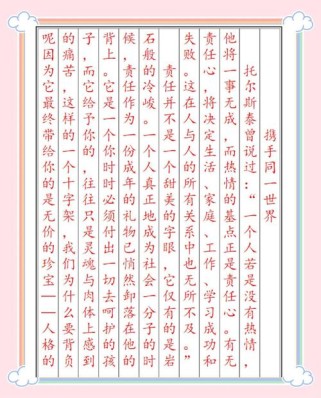 携手同一世界
托尔斯泰曾说过：“一个人若是没有热情，
他将一事无成，而热情的基点正是责任心。有无
责任心，将决定生活、家庭、工作、学习成功和
失败。这在人与人的所有关系中也无所不及。”
责任并不是一个甜美的字眼，它仅有的是岩
石般的冷峻。一个人真正地成为社会一分子的时
候，责任作为一份成年的礼物已悄然卸落在他的
背上。它是一个你时时必须付出一切去呵护的孩
子，而它给予你的，往往只是灵魂与肉体上感到
的痛苦，这样的一个十字架，我们为什么要背负
呢因为它最终带给你的是无价的珍宝——人格的